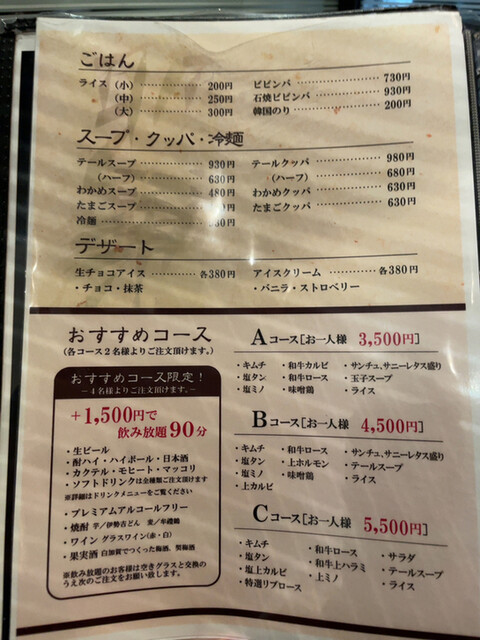 ごはん
ライス（小）……………200円
（中）……………250円
（大）……………300円
ビビンバ……………730円
石焼ビビンバ……………930円
韓国のり……………200円
スープ・クッパ・冷麺
テールスープ……………930円
（ハーフ）……………630円
わかめスープ……………480円
たまごスープ……………
冷麺……………
テールクッパ……………980円
（ハーフ）……………680円
わかめクッパ……………630円
たまごクッパ……………630円
デザート
生チョコアイス……………各380円
・チョコ・抹茶
アイスクリーム……………各380円
・バニラ・ストロベリー
おすすめコース
（各コース２名様よりご注文頂けます。）
おすすめコース限定！
－４名様よりご注文頂けます。－
＋1,500円で
飲み放題90分
・生ビール
・酎ハイ・ハイボール・日本酒
・カクテル・モヒート・マッコリ
・ソフトドリンクは全種類ご注文頂けます
※詳細はドリンクメニューをご覧ください
・プレミアムアルコールフリー
・焼酎 芋／伊勢吉どん 麦／
・ワイン グラスワイン（赤・白）
・果実酒 白加賀でつくった梅酒、
※飲み放題のお客様は空きグラスと交換の
うえ次のご注文をお願い致します。
Aコース［お一人様 3,500円］
・キムチ ・和牛カルビ ・サンチュ、サニーレタス盛り
・塩タン ・和牛ロース ・玉子スープ
・塩ミノ ・味噌鶏 ・ライス
Bコース［お一人様 4,500円］
・キムチ ・和牛ロース ・サンチュ、サニーレタス盛り
・塩タン ・上ホルモン ・テールスープ
・塩ミノ ・味噌鶏 ・ライス
・上カルビ
Cコース［お一人様 5,500円］
・キムチ ・和牛ロース ・サラダ
・塩タン ・和牛上ハラミ ・テールスープ
・塩上カルビ ・上ミノ ・ライス
・特選リブロース